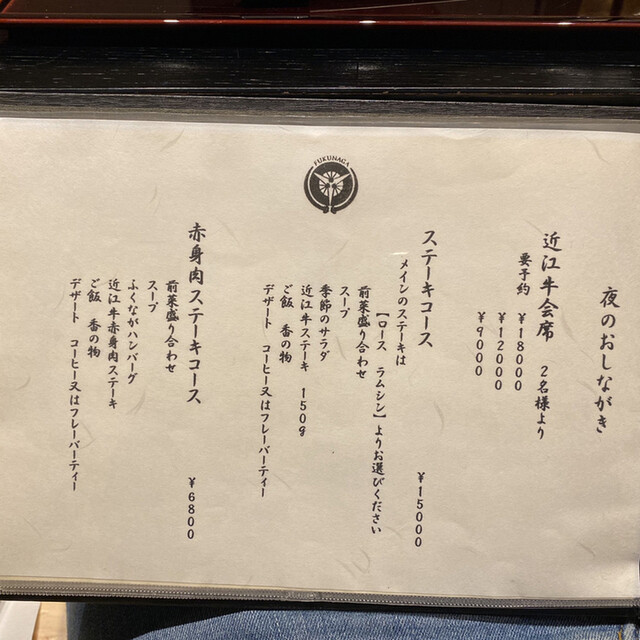 FUKUNAGA
夜のおしながき
近江牛会席 2名様より
要予約 ¥18000
¥12000
¥9000
ステーキコース ¥15000
メインのステーキは
【ロース ラムシン】よりお選びください
前菜盛り合わせ
スープ
季節のサラダ
近江牛ステーキ 150g
ご飯 香の物
デザート コーヒー又はフレーバーティー
赤身肉ステーキコース ¥6800
前菜盛り合わせ
スープ
ふくながハンバーグ
近江牛赤身肉ステーキ
ご飯 香の物
デザート コーヒー又はフレーバーティー